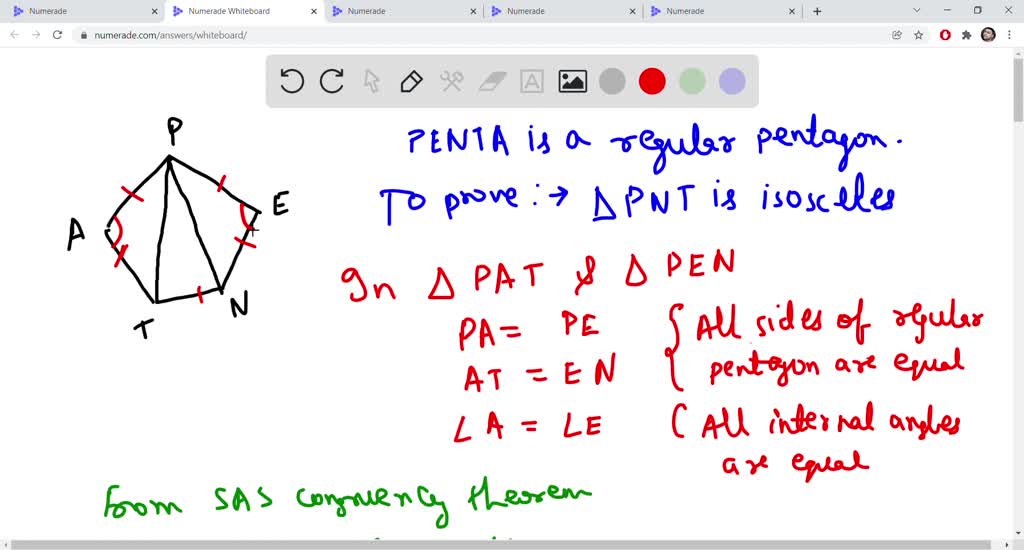 Numerade
Numerade Whiteboard
Numerade
Numerade
Numerade
numerade.com/answers/whiteboard/
A
PENTA is a regular pentagon.
To prove :→ Δ PNT is isosceles
P
E
A
T
N
In Δ PAT & Δ PEN
PA = PE { All sides of regular
AT = EN pentagon are equal
∠A = ∠E ( All internal angles
are equal
From SAS congruency theorem